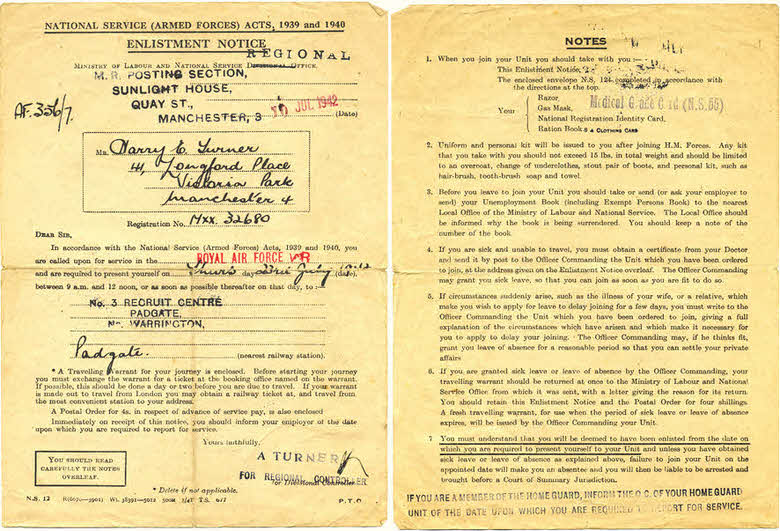 NATIONAL SERVICE (ARMED FORCES) ACTS, 1939 and 1940
ENLISTMENT NOTICE
REGIONAL
MINISTRY OF LABOUR AND NATIONAL SERVICE DIVISIONAL OFFICE.
M.R. POSTING SECTION,
SUNLIGHT HOUSE,
QUAY ST.,
MANCHESTER, 3
JUL 1942
(Date)
AF.356/7.
MR. Harry E Turner
41, Longford Place
Victoria Park
Manchester 4
Registration No. MXX. 32680
DEAR SIR,
In accordance with the National Service (Armed Forces) Acts, 1939 and 1940, you
are called upon for service in the ROYAL AIR FORCE VR
and are required to present yourself on Thurs day 23rd July 1942 (date),
between 9 a.m. and 12 noon, or as soon as possible thereafter on that day, to :—
No. 3 RECRUIT CENTRE
PADGATE,
Nr. WARRINGTON,
Padgate. (nearest railway station).
* A Travelling Warrant for your journey is enclosed. Before starting your journey
you must exchange the warrant for a ticket at the booking office named on the warrant.
If possible, this should be done a day or two before you are due to travel. If your warrant
is made out to travel from London you may obtain a railway ticket at, and travel from
the most convenient station to your address.
A Postal Order for 4s. in respect of advance of service pay, is also enclosed
Immediately on receipt of this notice, you should inform your employer of the date
upon which you are required to report for service.
Yours faithfully,
A TURNER
FOR REGIONAL CONTROLLER
for Divisional Controller
YOU SHOULD READ
CAREFULLY THE NOTES
OVERLEAF.
* Delete if not applicable.
N.S. 12
P.T.O
NOTES
1. When you join your Unit you should take with you :—
This Enlistment Notice.
The enclosed envelope N.S. 124 completed in accordance with
the directions at the top.
Medical Grade Card (N.S. 55)
Your
Razor,
Gas Mask,
National Registration Identity Card,
Ration Book & CLOTHING CARD
2. Uniform and personal kit will be issued to you after joining H.M. Forces. Any kit
that you take with you should not exceed 15 lbs. in total weight and should be limited
to an overcoat, change of underclothes, stout pair of boots, and personal kit, such as
hair-brush, tooth-brush soap and towel.
3. Before you leave to join your Unit you should take or send (or ask your employer to
send) your Unemployment Book (including Exempt Persons Book) to the nearest
Local Office of the Ministry of Labour and National Service. The Local Office should
be informed why the book is being surrendered. You should keep a note of the
number of the book.
4. If you are sick and unable to travel, you must obtain a certificate from your Doctor
and send it by post to the Officer Commanding the Unit which you have been ordered
to join, at the address given on the Enlistment Notice overleaf. The Officer Commanding
may grant you sick leave, so that you can join as soon as you are fit to do so.
5. If circumstances suddenly arise, such as the illness of your wife, or a relative, which
make you wish to apply for leave to delay joining for a few days, you must write to the
Officer Commanding the Unit which you have been ordered to join, giving a full
explanation of the circumstances which have arisen and which make it necessary for
you to apply to delay your joining. The Officer Commanding may, if he thinks fit,
grant you leave of absence for a reasonable period so that you can settle your private
affairs
6. If you are granted sick leave or leave of absence by the Officer Commanding, your
travelling warrant should be returned at once to the Ministry of Labour and National
Service Office from which it was sent, with a letter giving the reason for its return.
You should retain this Enlistment Notice and the Postal Order for four shillings.
A fresh travelling warrant, for use when the period of sick leave or leave of absence
expires, will be issued by the Officer Commanding your Unit.
7 You must understand that you will be deemed to have been enlisted from the date on
which you are required to present yourself to your Unit and unless you have obtained
sick leave or leave of absence as explained above, failure to join your Unit on the
appointed date will make you an absentee and you will then be liable to be arrested and
brought before a Court of Summary Jurisdiction.
IF YOU ARE A MEMBER OF THE HOME GUARD, INFORM THE O.C. OF YOUR HOME GUARD
UNIT OF THE DATE UPON WHICH YOU ARE REQUIRED TO REPORT FOR SERVICE.